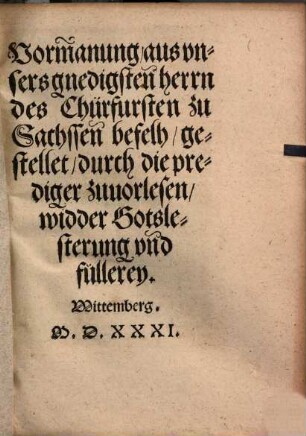 Vormanung/aus vn-
sers gnedigsten herrn
des Churfursten zu
Sachssen befelh/ge-
stellet/durch die pre-
diger zuuorlesen/
widder Gotsle-
sterung vnd
füllerey.
Wittemberg.
M. D. XXXI.